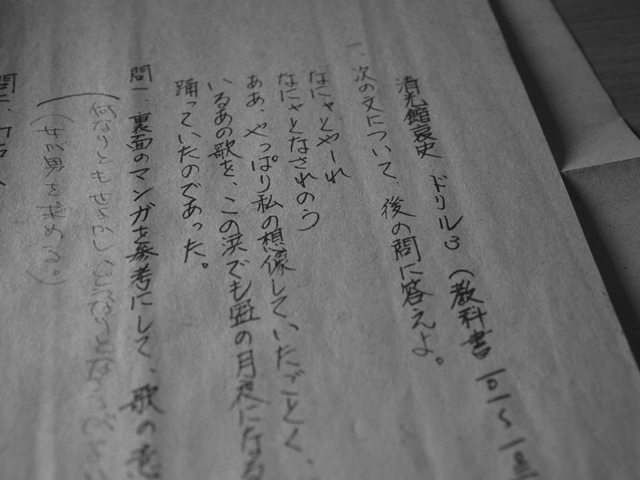 清光館哀史 ドリル3 (教科書 一〇一〜一
一、次の文について、後の問に答えよ。
なにャとやーれ
なにャとなされのう
ああ、やっぱり私の想像していたごとく、
いるあの歌を、この浜でも盆の月夜になる
踊っていたのであった。
問一、裏面のマンガを参考にして、歌の意
(何なりともせよかし
(女が男を求める。)
問二、